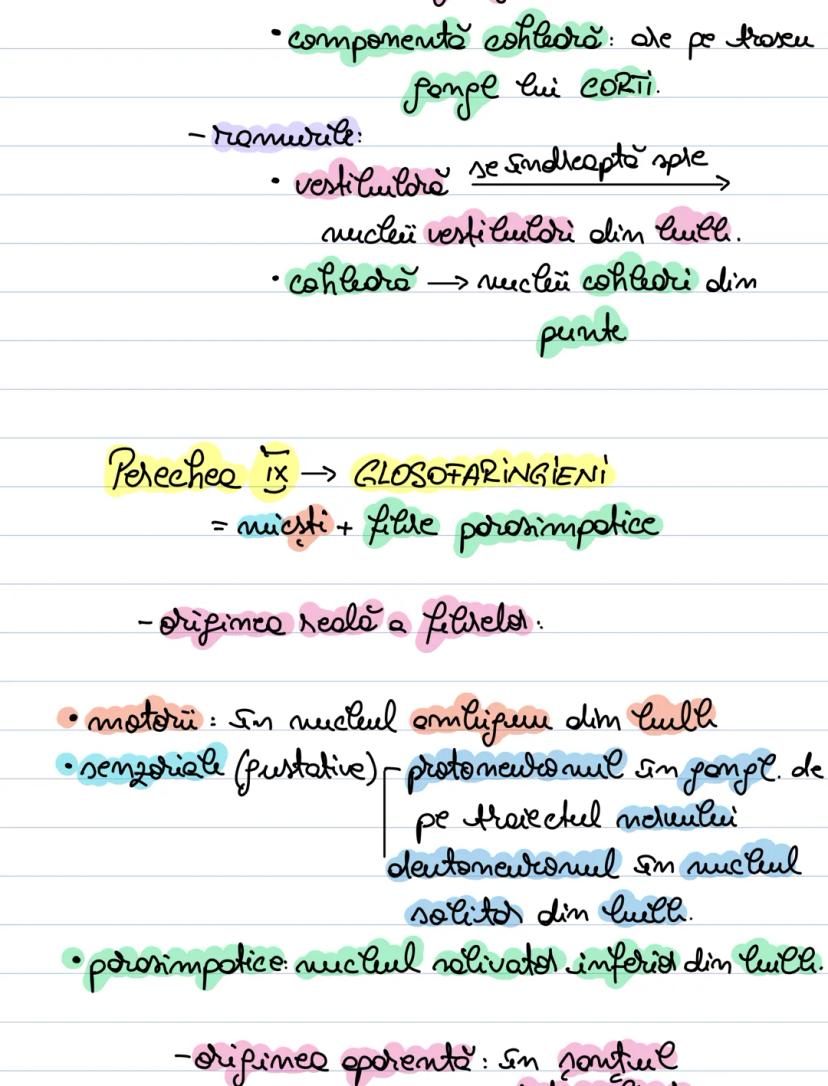 • componentă cohleară: are pe traseu
gangl lui CORTI.
- ramurile:
• vestibulară se îndreaptă spre →
nucleii vestibulari din bulb.
• cohleară → nucleii cohleari din
punte
Perechea IX → GLOSOFARINGIENI
= micști + fibre parasimpatice
- originea reală a fibrelor:
• motorii: în nucleul ambiguu din bulb
• senzoriale (gustative) protoneuronul în gangl. de
pe traiectul nervului
deutoneuronul în nucleul
solitar din bulb.
• parasimpatice: nucleul salivator inferior din bulb.
- originea aparentă: în șanțul